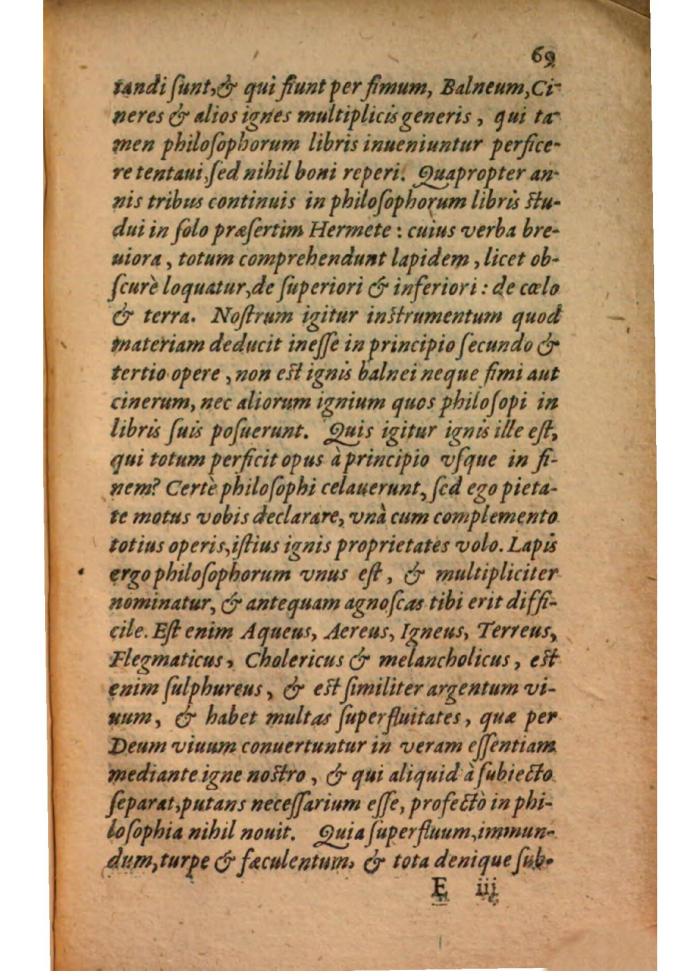 69
tandi ſunt,& qui fiunt per fimum, Balneum,Ci-
neres & alios ignes multiplicis generis, qui ta-
men philoſophorum libris inueniuntur perfice-
re tentaui,ſed nihil boni reperi. Quapropter an-
nis tribus continuis in philoſophorum libris ſtu-
dui in ſolo præſertim Hermete : cuius verba bre-
uiora, totum comprehendunt lapidem, licet ob-
ſcurè loquatur,de ſuperiori & inferiori : de cœlo
& terra. Noſtrum igitur inſtrumentum quod
materiam deducit ineſſe in principio ſecundo &
tertio opere, non eſt ignis balnei neque fimi aut
cinerum, nec aliorum ignium quos philoſopi in
libris ſuis poſuerunt. Quis igitur ignis ille eſt,
qui totum perficit opus à principio vſque in fi-
nem? Certè philoſophi celauerunt, ſed ego pieta-
te motus vobis declarare, vnà cum complemento
totius operis,iſtius ignis proprietates volo. Lapis
ergo philoſophorum vnus eſt, & multipliciter
nominatur, & antequam agnoſcas tibi erit diffi-
cile. Eſt enim Aqueus, Aereus, Igneus, Terreus,
Flegmaticus, Cholericus & melancholicus, eſt
enim ſulphureus, & eſt ſimiliter argentum vi-
uum, & habet multas ſuperfluitates, quæ per
Deum viuum conuertuntur in veram eſſentiam
mediante igne noſtro, & qui aliquid à ſubiecto
ſeparat,putans neceſſarium eſſe, profectò in phi-
loſophia nihil nouit. Quia ſuperfluum,immun-
dum,turpe & fæculentum, & tota denique ſub-
E iij